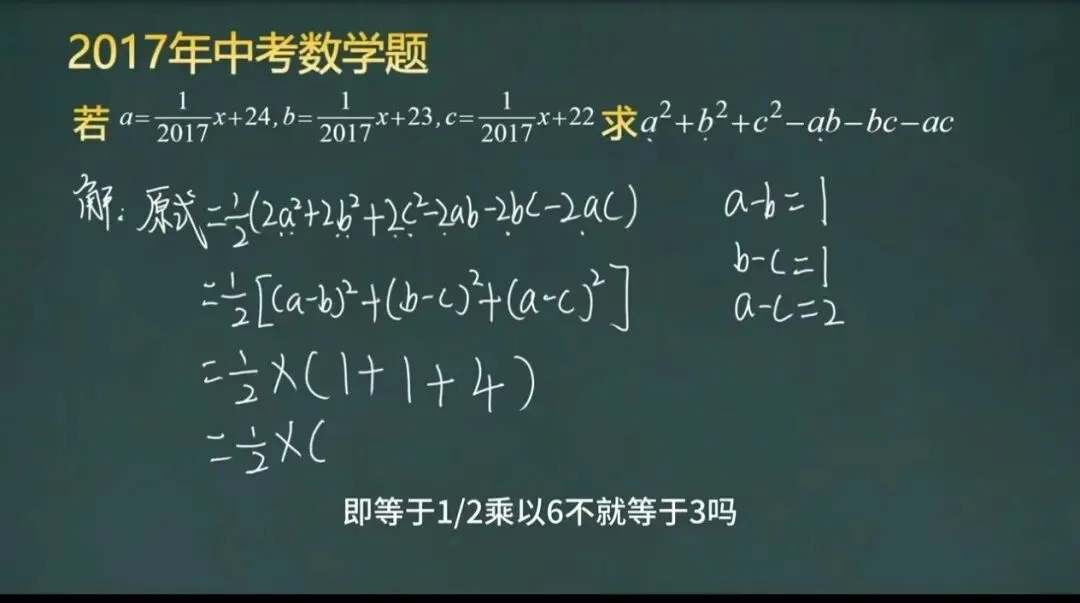 2017年中考数学题
若 a=1/2017x+24,b=1/2017x+23,c=1/2017x+22 求a²+b²+c²-ab-bc-ac
解:原式=1/2(2a²+2b²+2c²-2ab-2bc-2ac)
a-b=1
=1/2[(a-b)²+(b-c)²+(a-c)²]
b-c=1
a-c=2
=1/2×(1+1+4)
=1/2×(
即等于1/2乘以6不就等于3吗